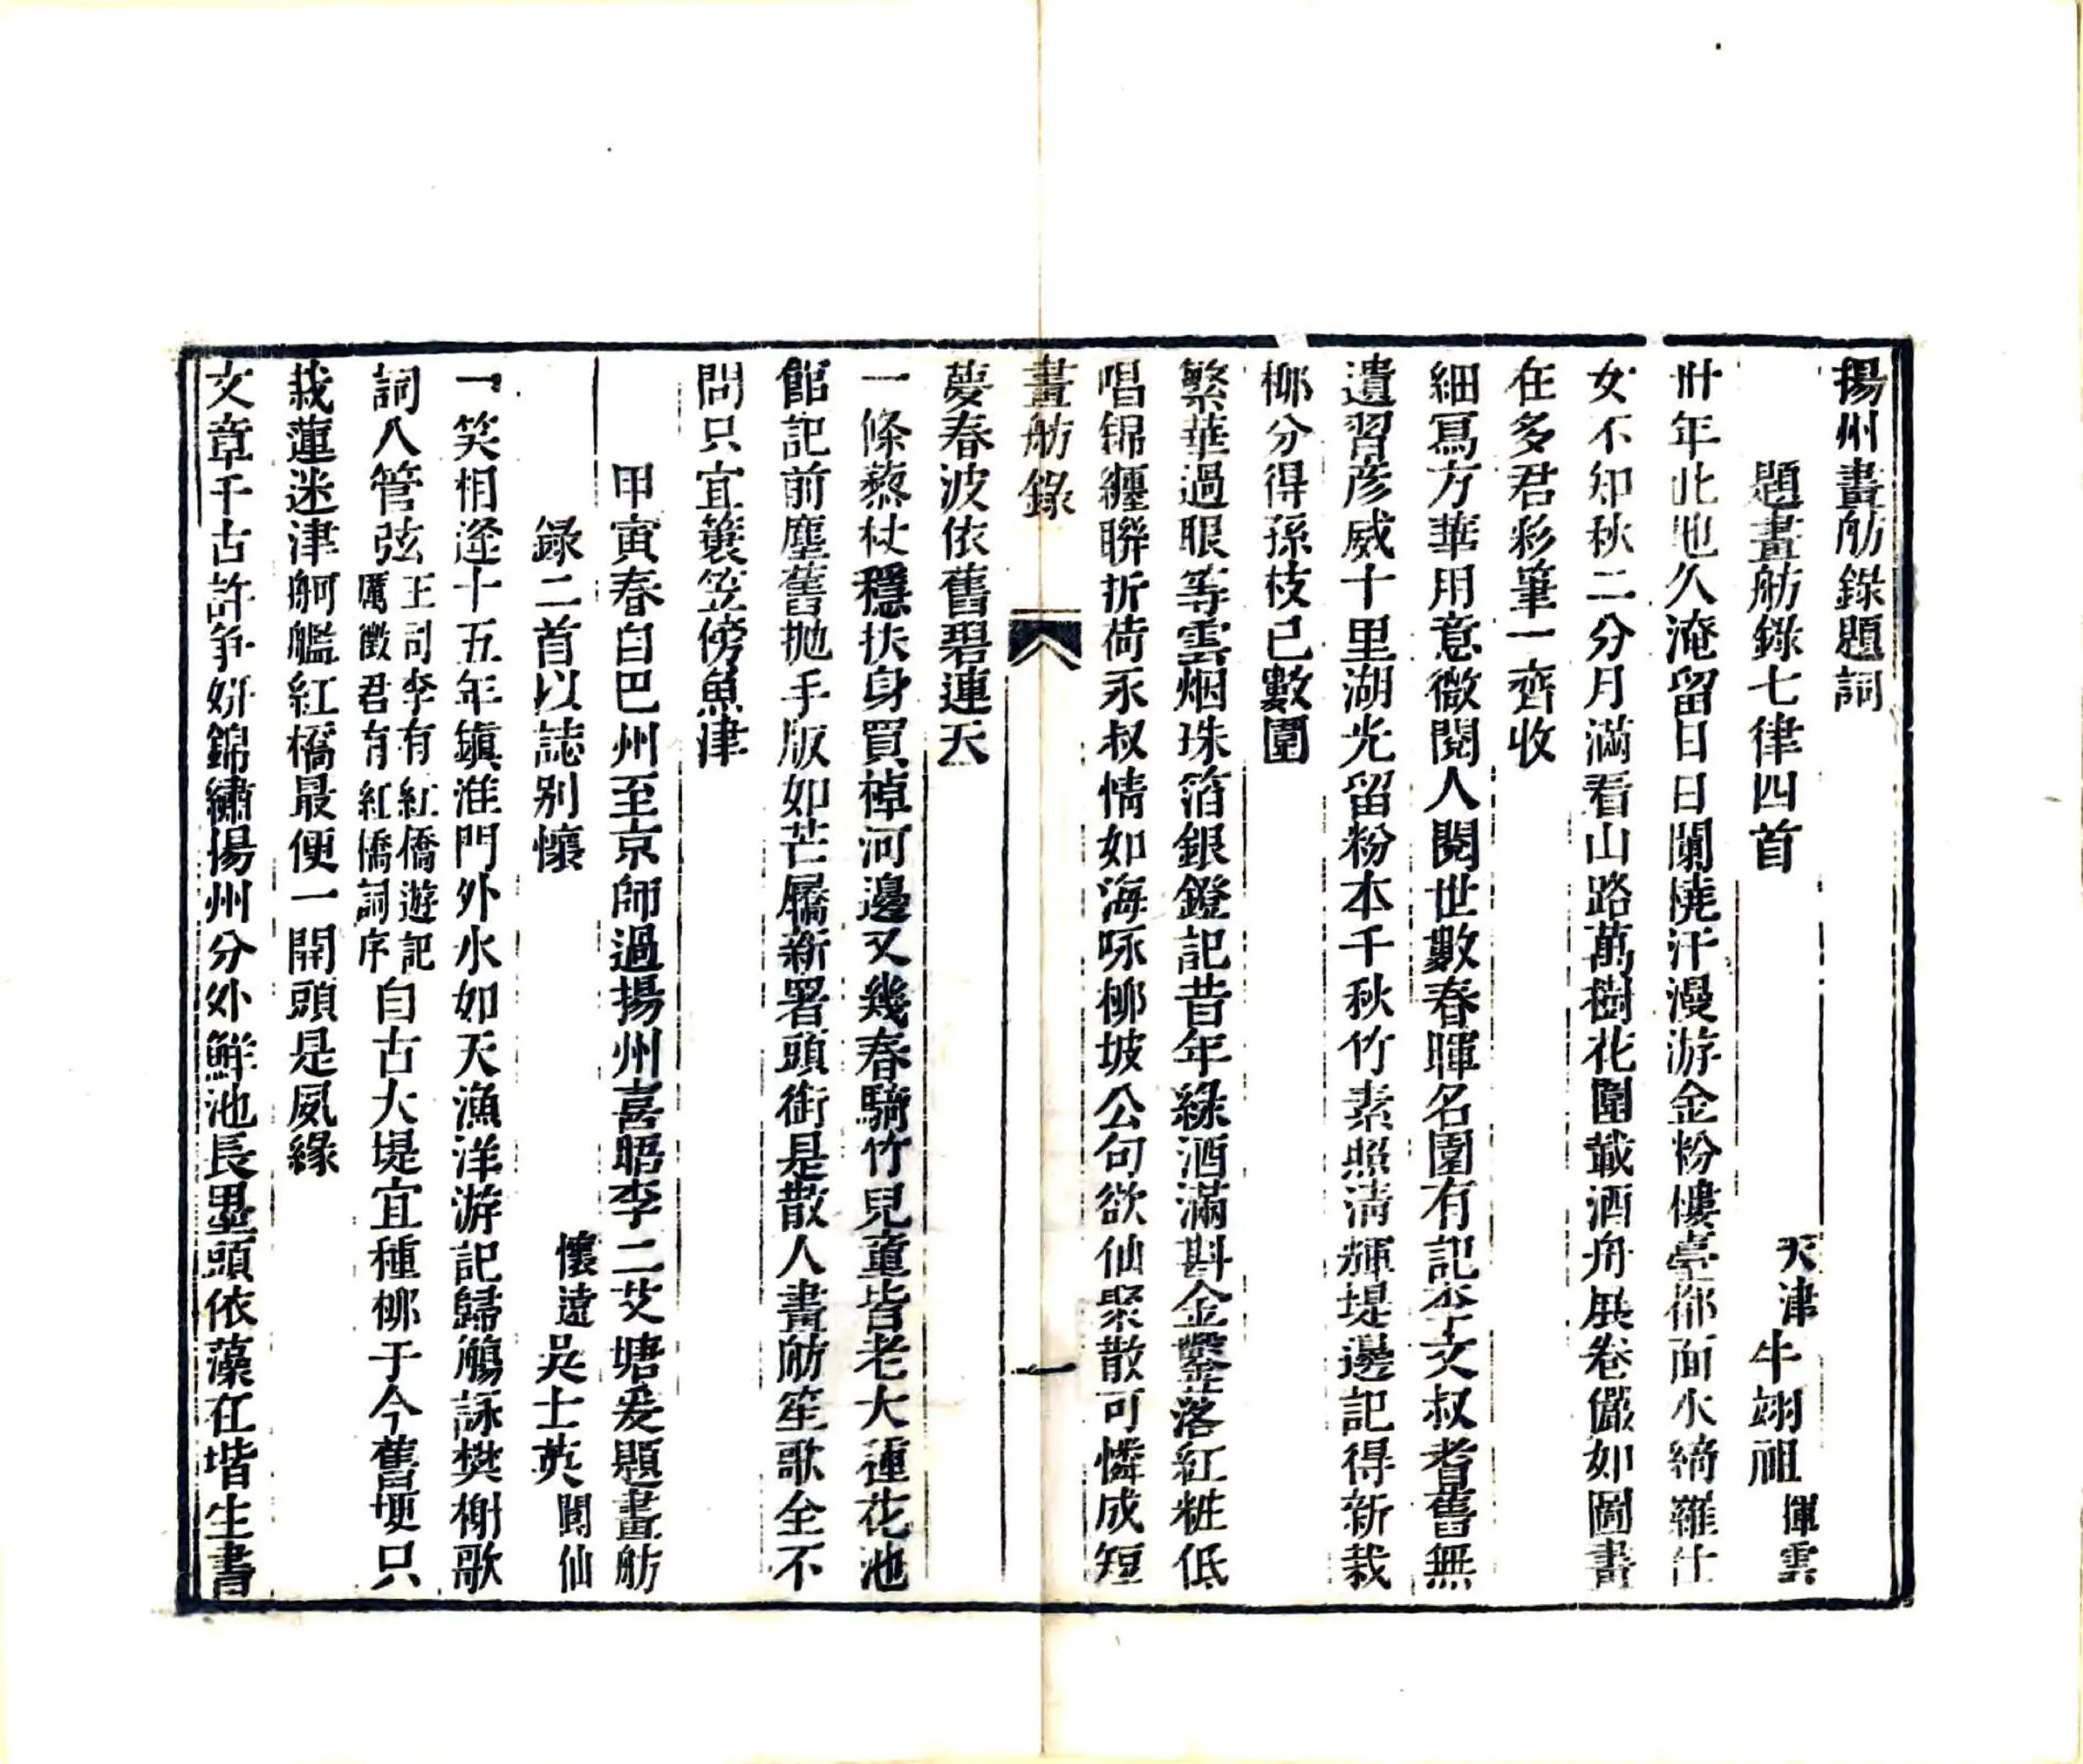 揚州畫舫錄題詞
題畫舫錄七律四首 天津牛翊祖 渾雲
卅年此地久淹留日日闌橈汗漫游金粉樓臺都面水綺羅仕
女不知秋二分月滿看山路萬樹花圍載酒舟展卷儼如圖畫
在多君彩筆一齊收
細寫方華用意微閱人閱世數春暉名園有記本文叔耆舊無
遺習彥威十里湖光留粉本千秋竹素照淸輝堤邊記得新栽
柳分得孫枝已數圍
繁華過眼等雲烟珠箔銀鐙記昔年綠酒滿斟金鑿落紅粧低
唱錦纏聯折荷永叔情如海咏柳坡公句欲仙聚散可憐成短
畫舫錄 一
夢春波依舊碧連天
一條藜杖穩扶身買棹河邊又幾春騎竹兒童皆老大蓮花池
館記前塵舊抛手版如芒屩新署頭銜是散人畫舫笙歌全不
問只宜簑笠傍魚津
甲寅春自巴州至京師過揚州喜晤李二艾塘爰題畫舫
錄二首以誌別懷 懷遠吳士英 閬仙
一笑相逢十五年鎭淮門外水如天漁洋游記歸觴詠樊榭歌
詞入管弦王司李有紅僑遊記厲徵君有紅僑詞序自古大堤宜種柳于今舊埂只
栽蓮迷津舸艦紅橋最便一開頭是夙緣
文章千古許爭妍錦繡揚州分外鮮池長墨頭依藻在堦生書